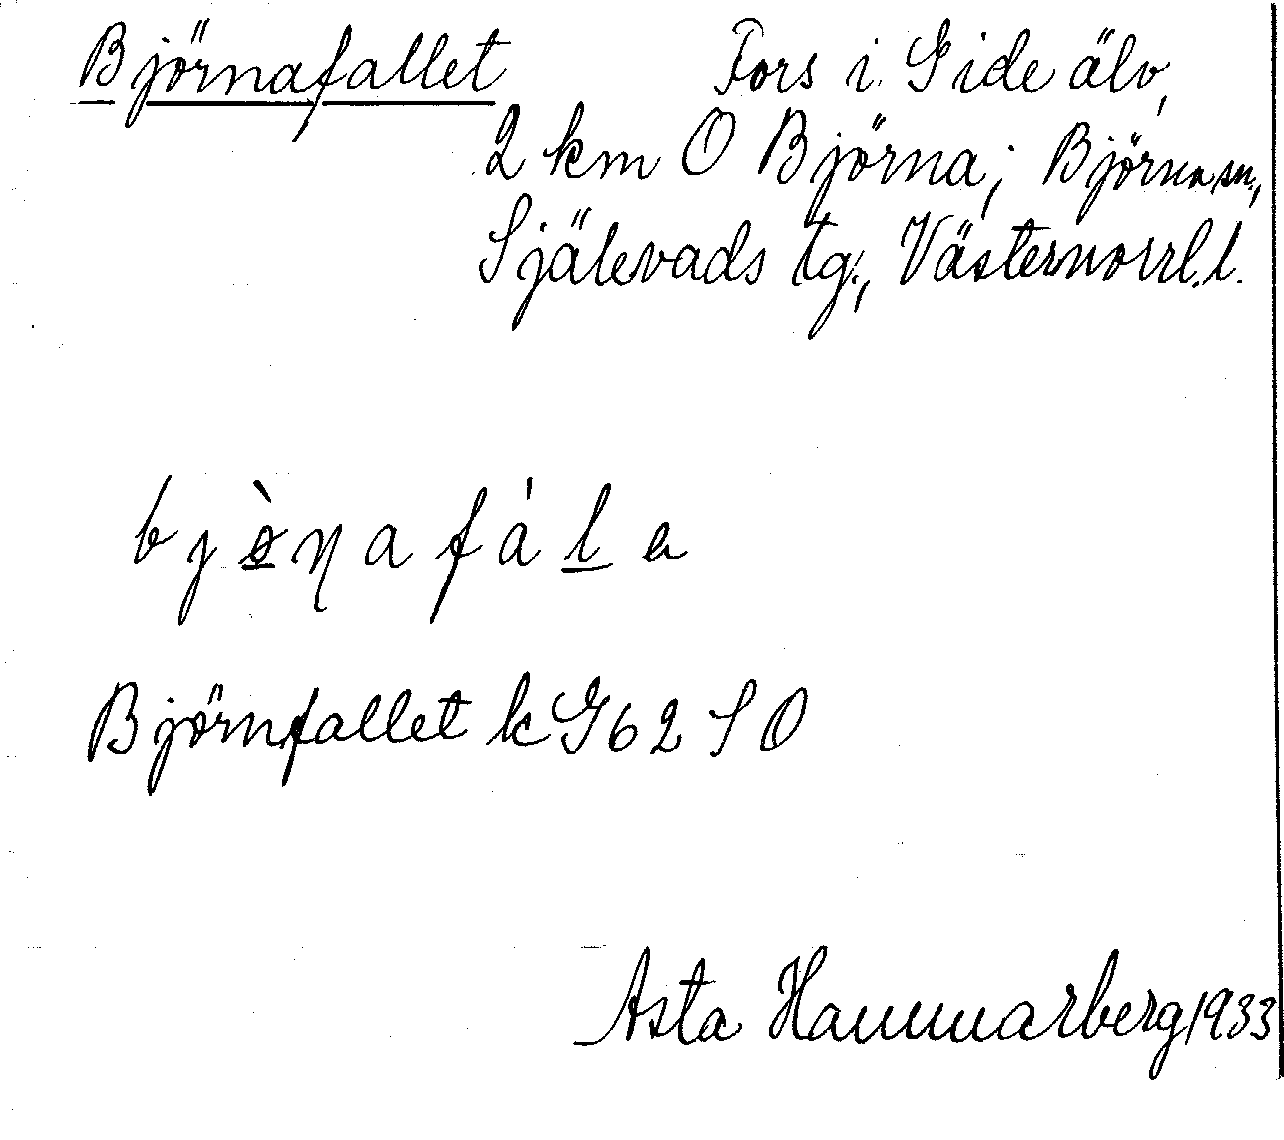 Björnafallet Fors i Gide älv,
2 km O Björna; Björna sn.,
Själevads tg., Västernorrl. l.
bjö̀ṇafála
Björnfallet k G 62 SO
Asta Hammarberg 1933